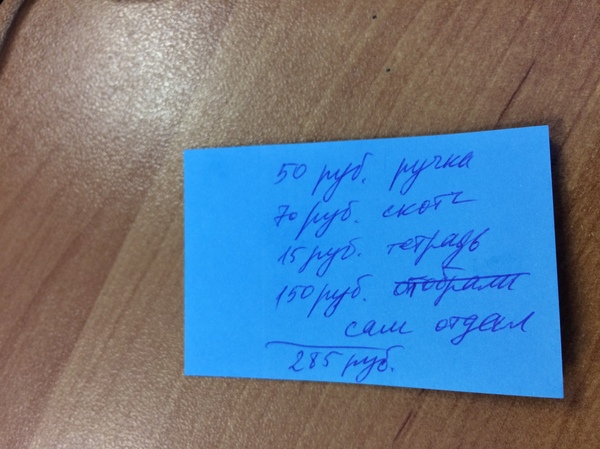 50 руб. ручка
70 руб. скотч
15 руб. тетрадь
150 руб. отобрали
сам отдал
285 руб.